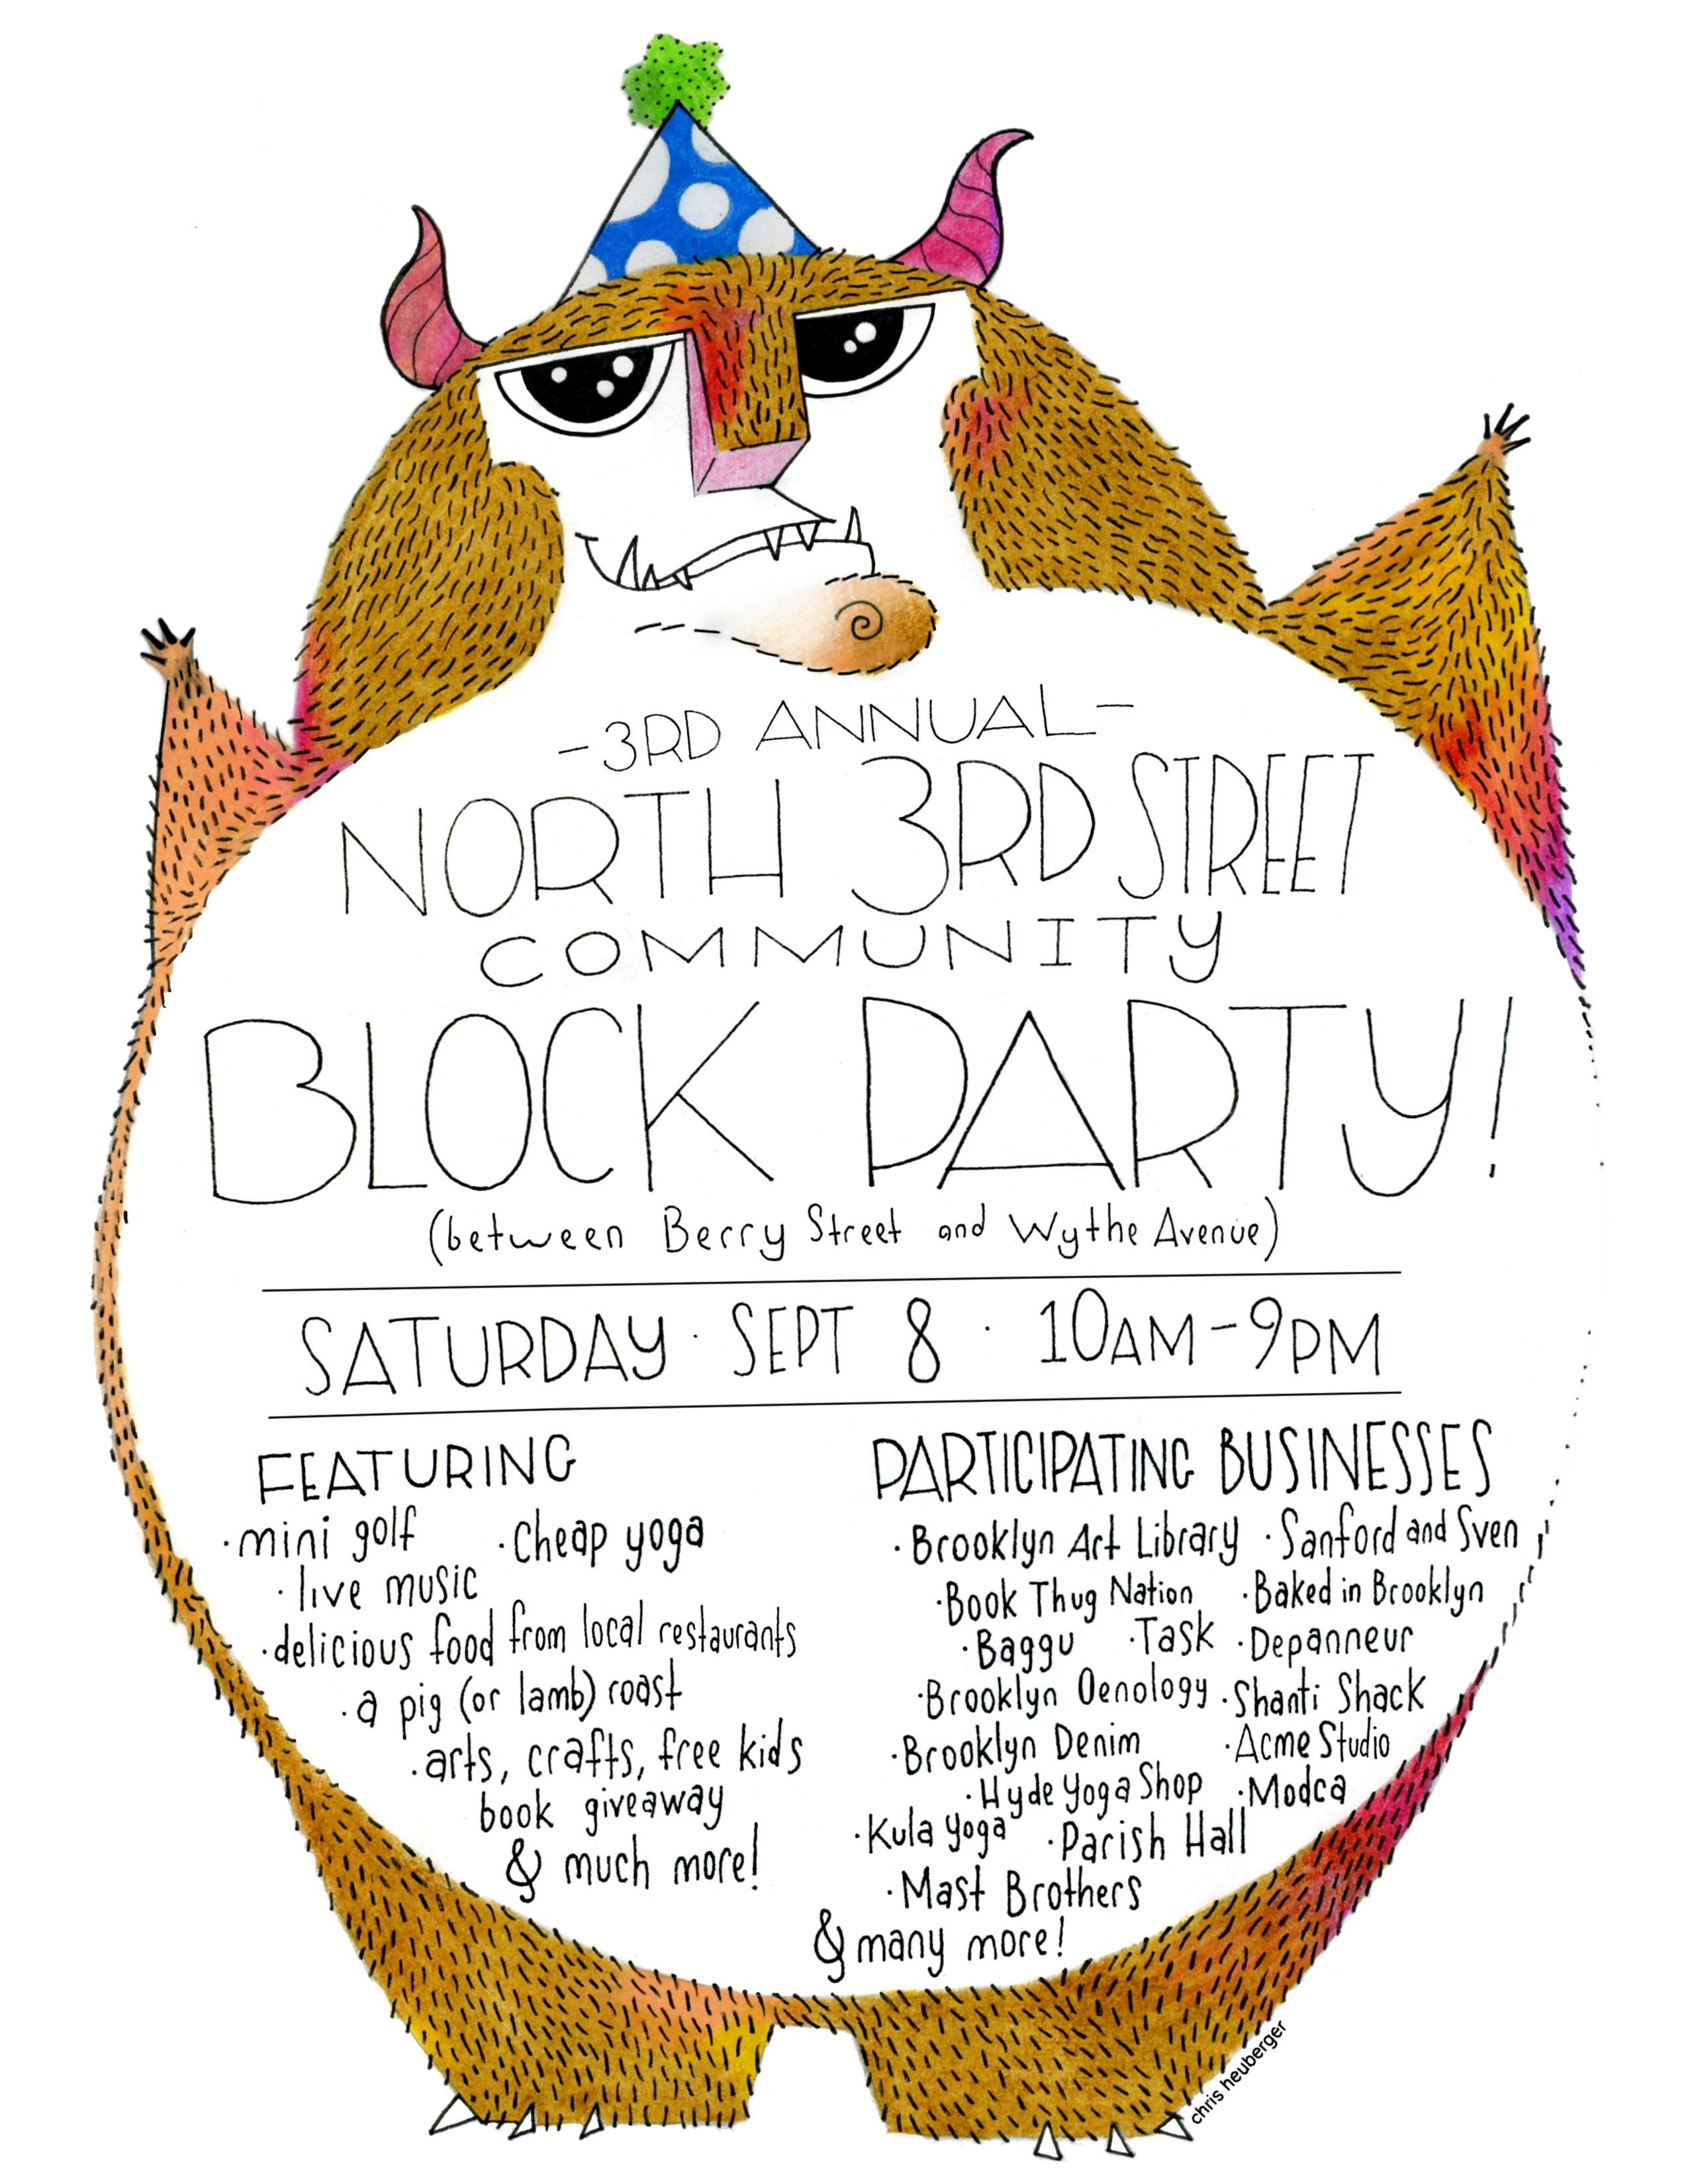 -3RD ANNUAL-
NORTH 3RD STREET
COMMUNITY
BLOCK PARTY!
(between Berry Street and Wythe Avenue)
SATURDAY · SEPT 8 · 10AM-9PM
FEATURING
·mini golf ·Cheap yoga
·live music
·delicious food from local restaurants
·a pig (or lamb) roast
·arts, crafts, free kids
book giveaway
& much more!
PARTICIPATING BUSINESSES
·Brooklyn Art Library ·Sanford and Sven
·Book Thug Nation ·Baked in Brooklyn
·Baggu ·Task ·Depanneur
·Brooklyn Oenology ·Shanti Shack
·Brooklyn Denim ·Acme Studio
·Hyde Yoga Shop ·Modca
·Kula Yoga ·Parish Hall
·Mast Brothers
& many more!
chris heuberger